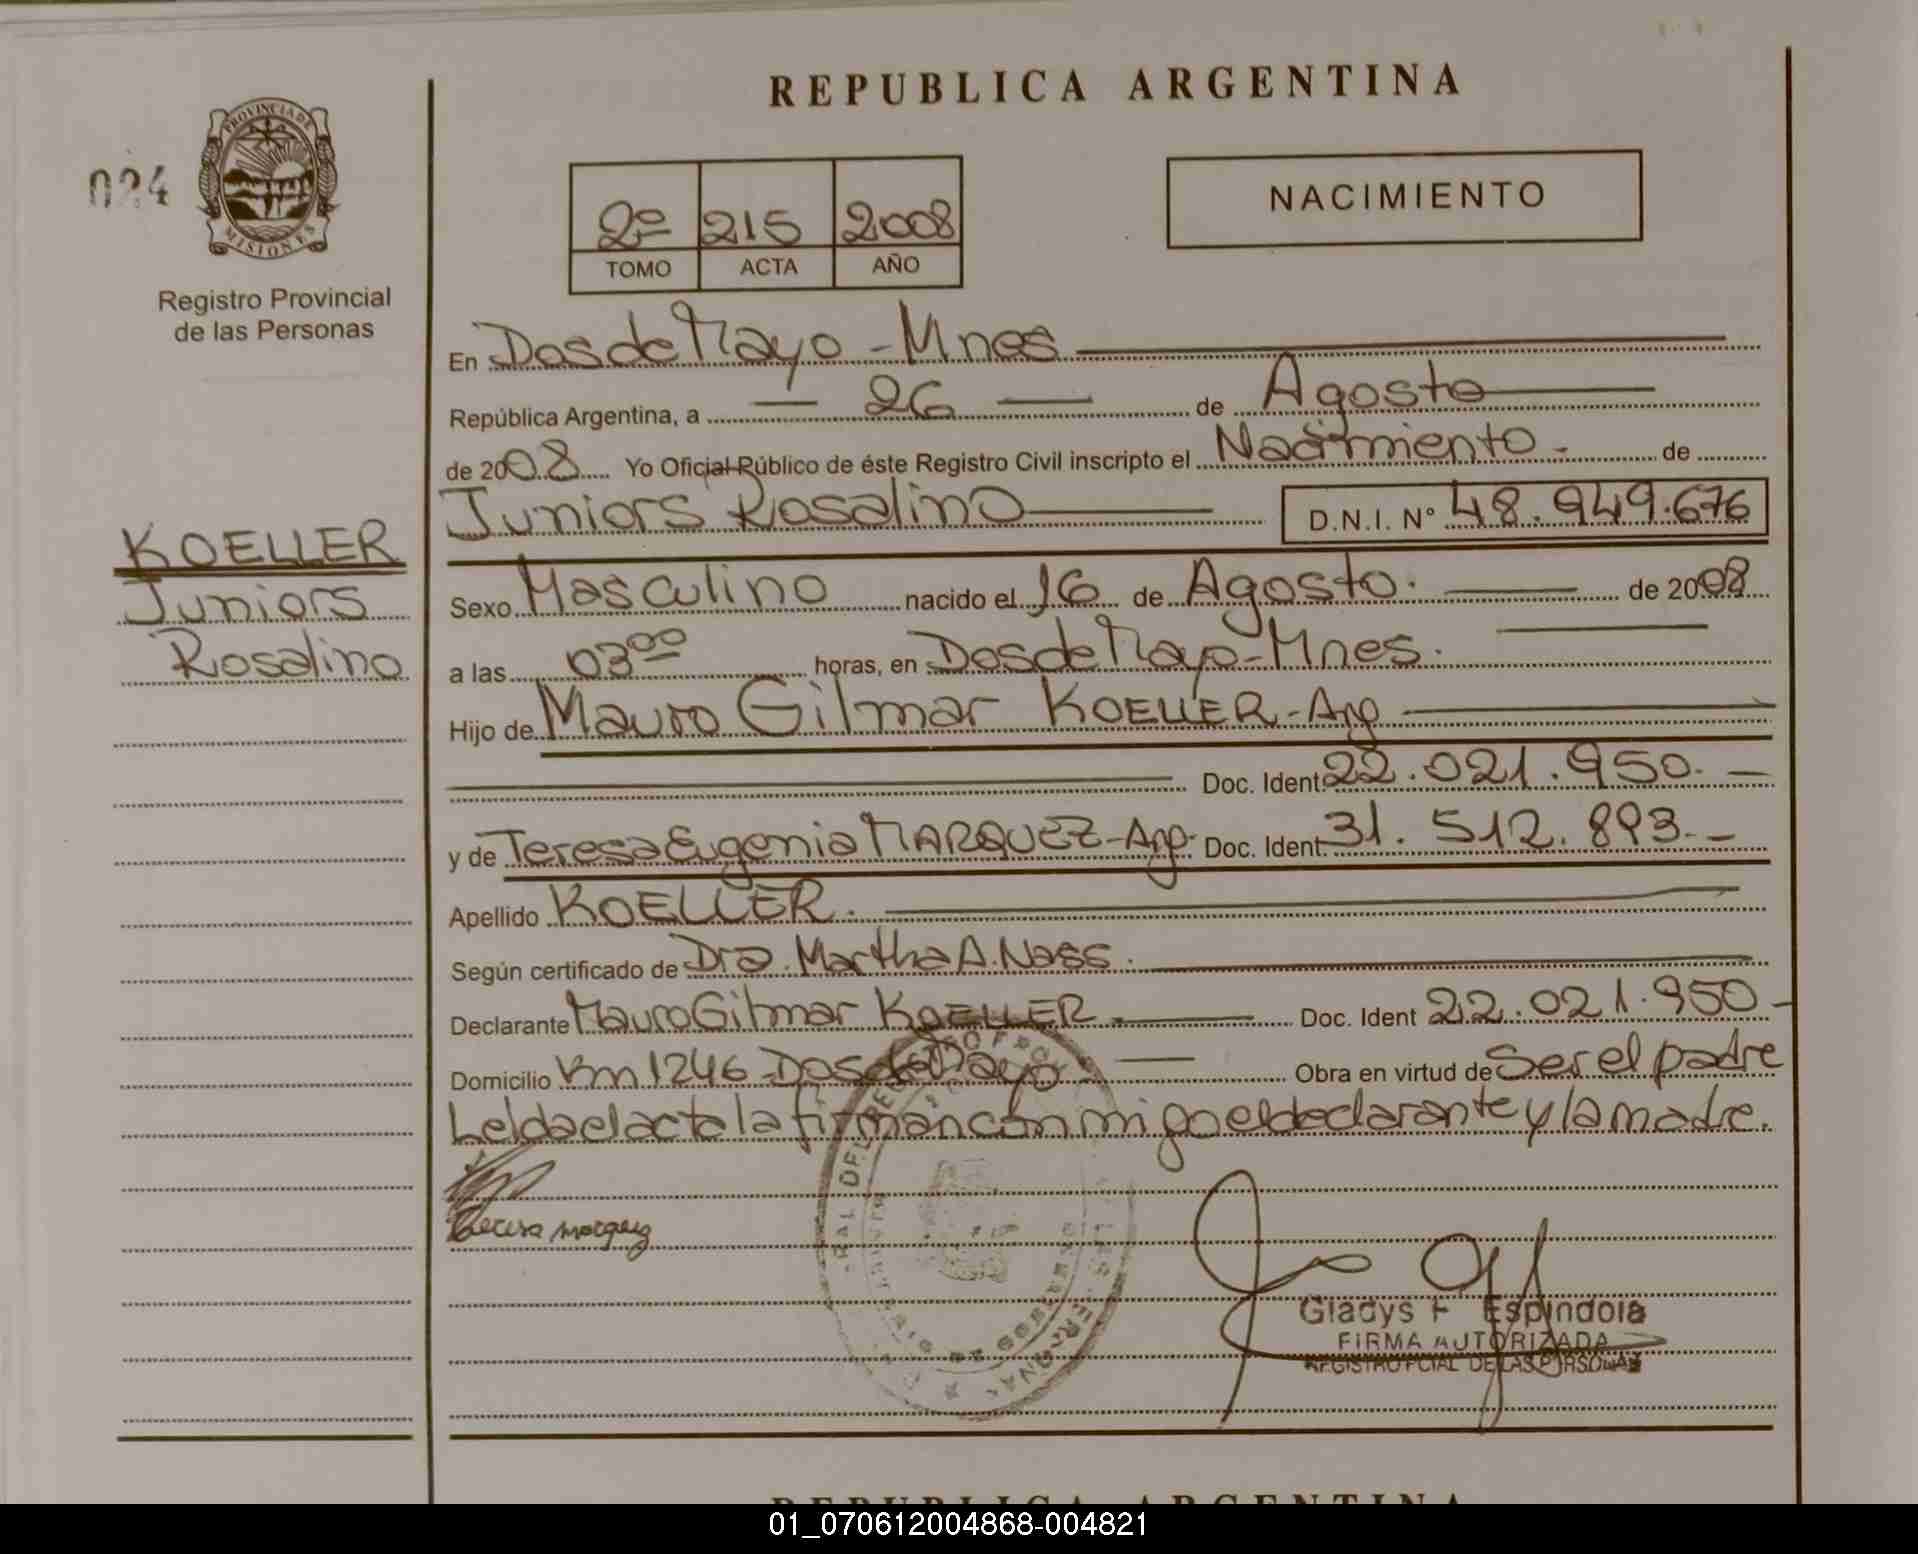 REPUBLICA ARGENTINA
024
PROVINCIA DE
MISIONES
Registro Provincial
de las Personas
2º 215 2008
TOMO ACTA AÑO
NACIMIENTO
En Dos de Mayo - Mnes
República Argentina, a — 26 — de Agosto
de 2008 Yo Oficial Público de éste Registro Civil inscripto el Nacimiento - de
Juniors Rosalino D.N.I. Nº 48.949.676
KOELLER
Juniors
Rosalino
Sexo Masculino nacido el 16 de Agosto. de 2008
a las 03⁰⁰ horas, en Dos de Mayo - Mnes.
Hijo de Mauro Gilmar KOELLER - Arg
Doc. Ident. 22.021.950. —
y de Teresa Eugenia MARQUEZ - Arg. Doc. Ident. 31.512.893. —
Apellido KOELLER.
Según certificado de Dra. Martha A. Nass.
Declarante Mauro Gilmar KOELLER Doc. Ident 22.021.950 -
Domicilio Km 1246 - Dos de Mayo — Obra en virtud de Ser el padre
Leida el acta la firman conmigo el declarante y la madre.
Teresa marquez
Gladys F. Espindola
FIRMA AUTORIZADA
REGISTRO PCIAL DE LAS PERSONAS
REPUBLICA ARGENTINA
01_070612004868-004821